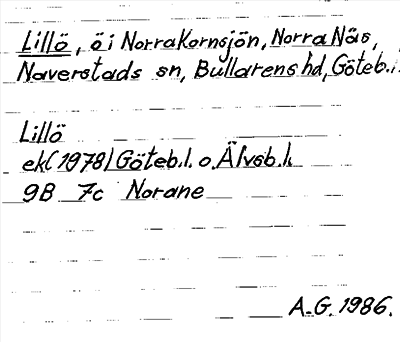 Lillö, ö i Norra Kornsjön, Norra Näs,
Naverstads sn, Bullarens hd, Göteb.l.
Lillö
ek(1978) Göteb.l. o. Älvsb.l.
9B 7c Norane
A.G. 1986.